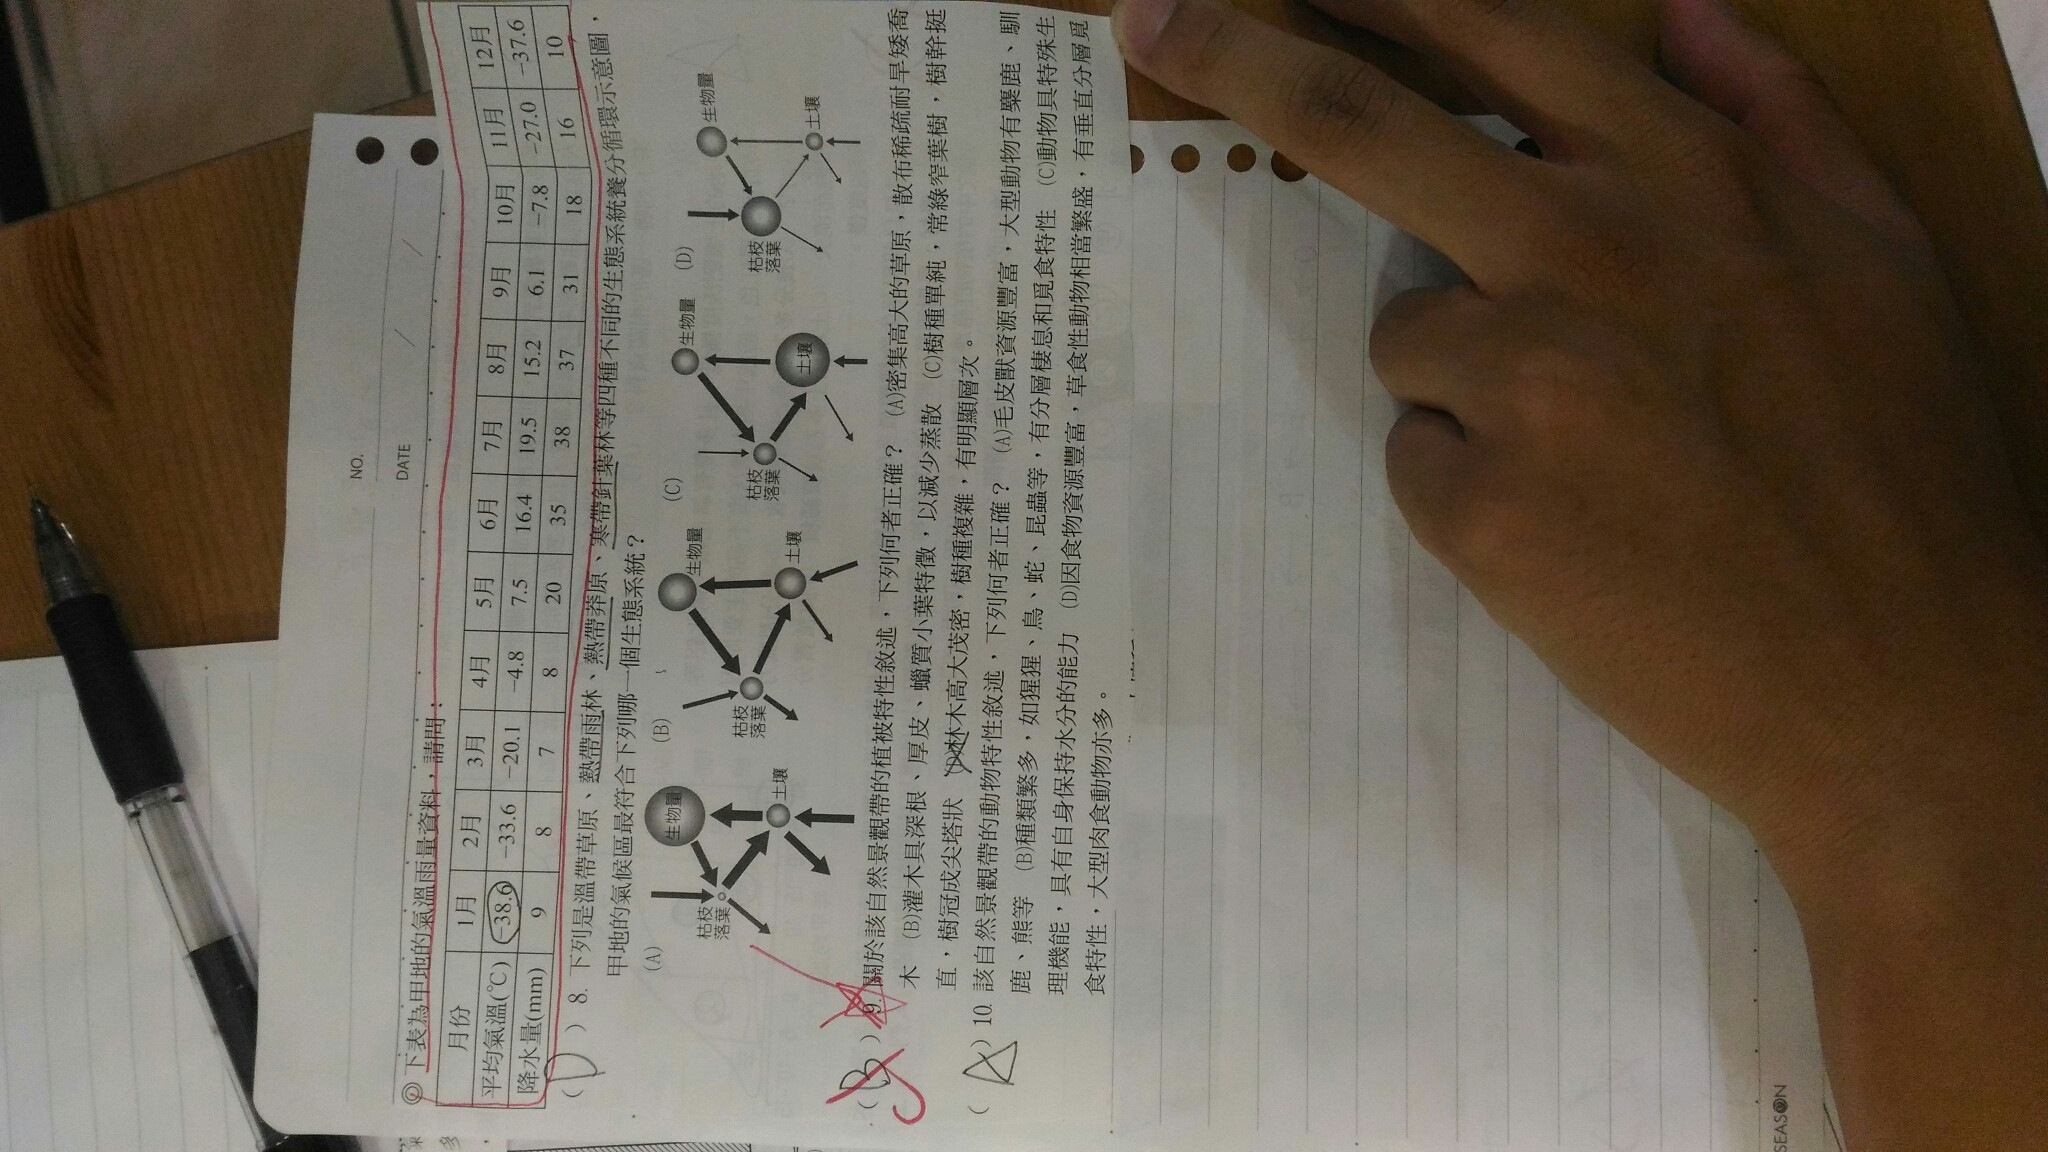 NO.
DATE
◎下表為甲地的氣溫雨量資料，請問：
月份 1月 2月 3月 4月 5月 6月 7月 8月 9月 10月 11月 12月
平均氣溫(℃) -38.6 -33.6 -20.1 -4.8 7.5 16.4 19.5 15.2 6.1 -7.8 -27.0 -37.6
降水量(mm) 9 8 7 8 20 35 38 37 31 18 16 10
( D ) 8. 下列是溫帶草原、熱帶雨林、熱帶莽原、寒帶針葉林等四種不同的生態系統養分循環示意圖，
甲地的氣候區最符合下列哪一個生態系統？
(A) (B) (C) (D)
生物量 生物量 生物量 生物量
枯枝落葉 枯枝落葉 枯枝落葉 枯枝落葉
土壤 土壤 土壤 土壤
( B C ) 9. 關於該自然景觀帶的植被特性敘述，下列何者正確？ (A)密集高大的草原，散布稀疏耐旱矮喬
木 (B)灌木具深根、厚皮、蠟質小葉特徵，以減少蒸散 (C)樹種單純，常綠窄葉樹，樹幹挺
直，樹冠成尖塔狀 (D)林木高大茂密，樹種複雜，有明顯層次。
( A ) 10. 該自然景觀帶的動物特性敘述，下列何者正確？ (A)毛皮獸資源豐富，大型動物有麋鹿、馴
鹿、熊等 (B)種類繁多，如猩猩、鳥、蛇、昆蟲等，有分層棲息和覓食特性 (C)動物具特殊生
理機能，具有自身保持水分的能力 (D)因食物資源豐富，草食性動物相當繁盛，有垂直分層覓
食特性，大型肉食動物亦多。
SEASON